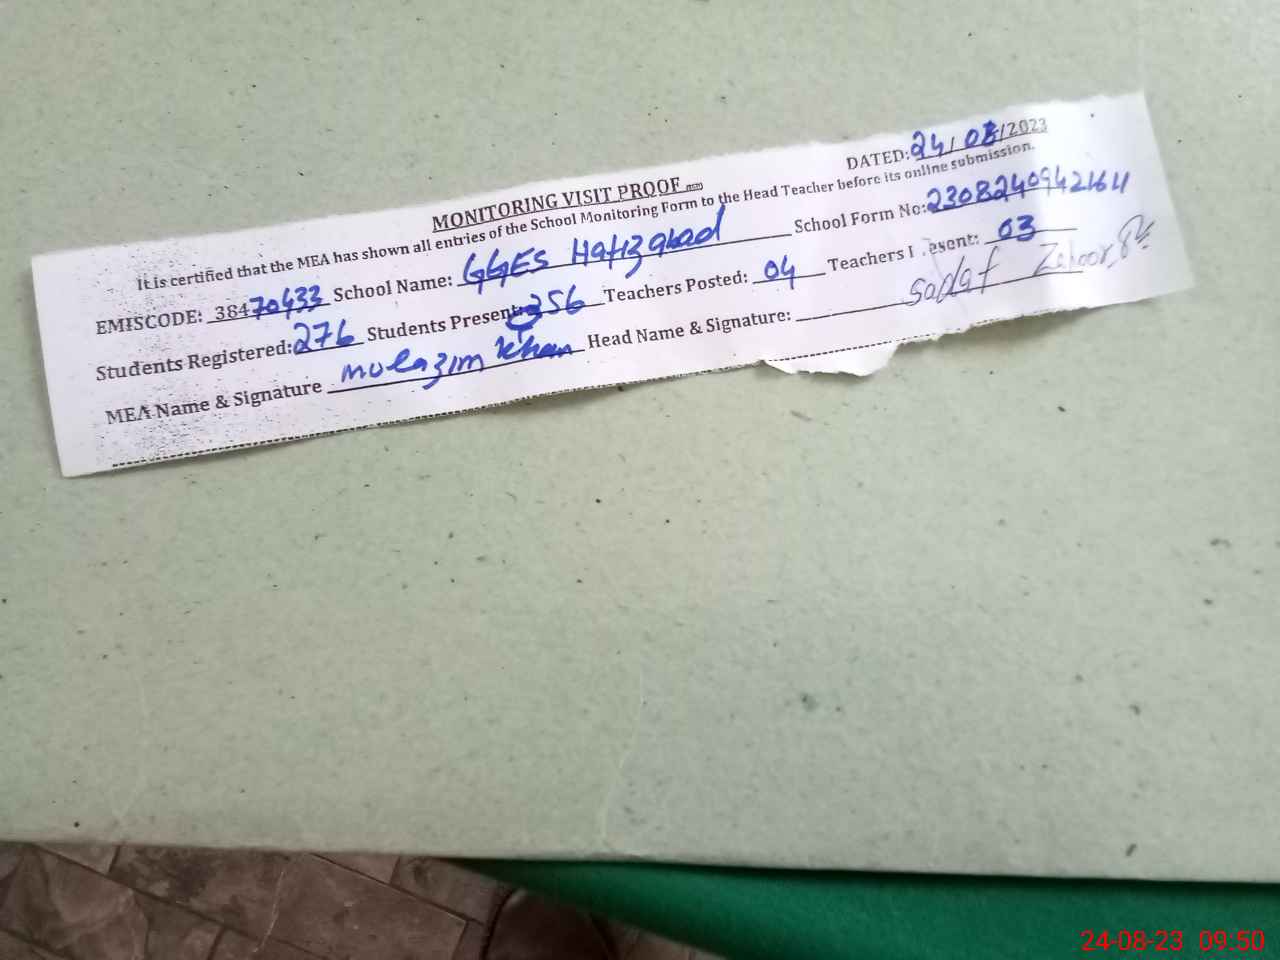 MONITORING VISIT PROOF
DATED: 24/08/2023
It is certified that the MEA has shown all entries of the School Monitoring Form to the Head Teacher before its online submission.
EMISCODE: 38470433 School Name: GGES Hafizabad School Form No: 2308240942164
Students Registered: 276 Students Present: 256 Teachers Posted: 04 Teachers Present: 03
MEA Name & Signature mulazim Khan Head Name & Signature: Sadaf Zahoor
24-08-23 09:50